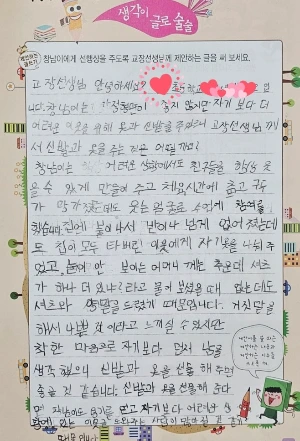 생각이 글로 술술
창남이에게 선행상을 주도록 교장선생님께 제안하는 글을 써 보세요.
교장선생님 안녕하세요?
니다. 창남이는 형편이 좋지 않지만 자기 보다 더
어려운 이웃을 위해 옷과 신발을 주었어요 교장선생님께
서 신발과 옷을 주는 것은 어떨까요?
창남이는 어려운 상황에서도 친구들을 항상 웃
을 수 있게 만들어 주고 체육시간에 춥고 구두
가 망가졌는데도 웃는 얼굴로 수업에 참여를
했습니다. 집에 불이나서 반이나 넘게 없어졌는데
도 집이 모두 타버린 이웃에게 자기 옷을 나눠 주
었고, 눈이 안 보이는 어머니께는 추운데 셔츠
가 하나 더 있냐? 라고 물어 보셨을 때 없는데도
셔츠와 양말을 드렸기 때문입니다. 거짓말을
해서 나쁠 것 이라고 느끼실 수 있지만
착한 마음으로 자기보다 먼저 남을
생각 했으니 신발과 옷을 선물 해 주면
좋을 것 같습니다. 신발과 옷을 선물해 준다
면 창남이도 용기를 얻고 자기보다 어려운 상황